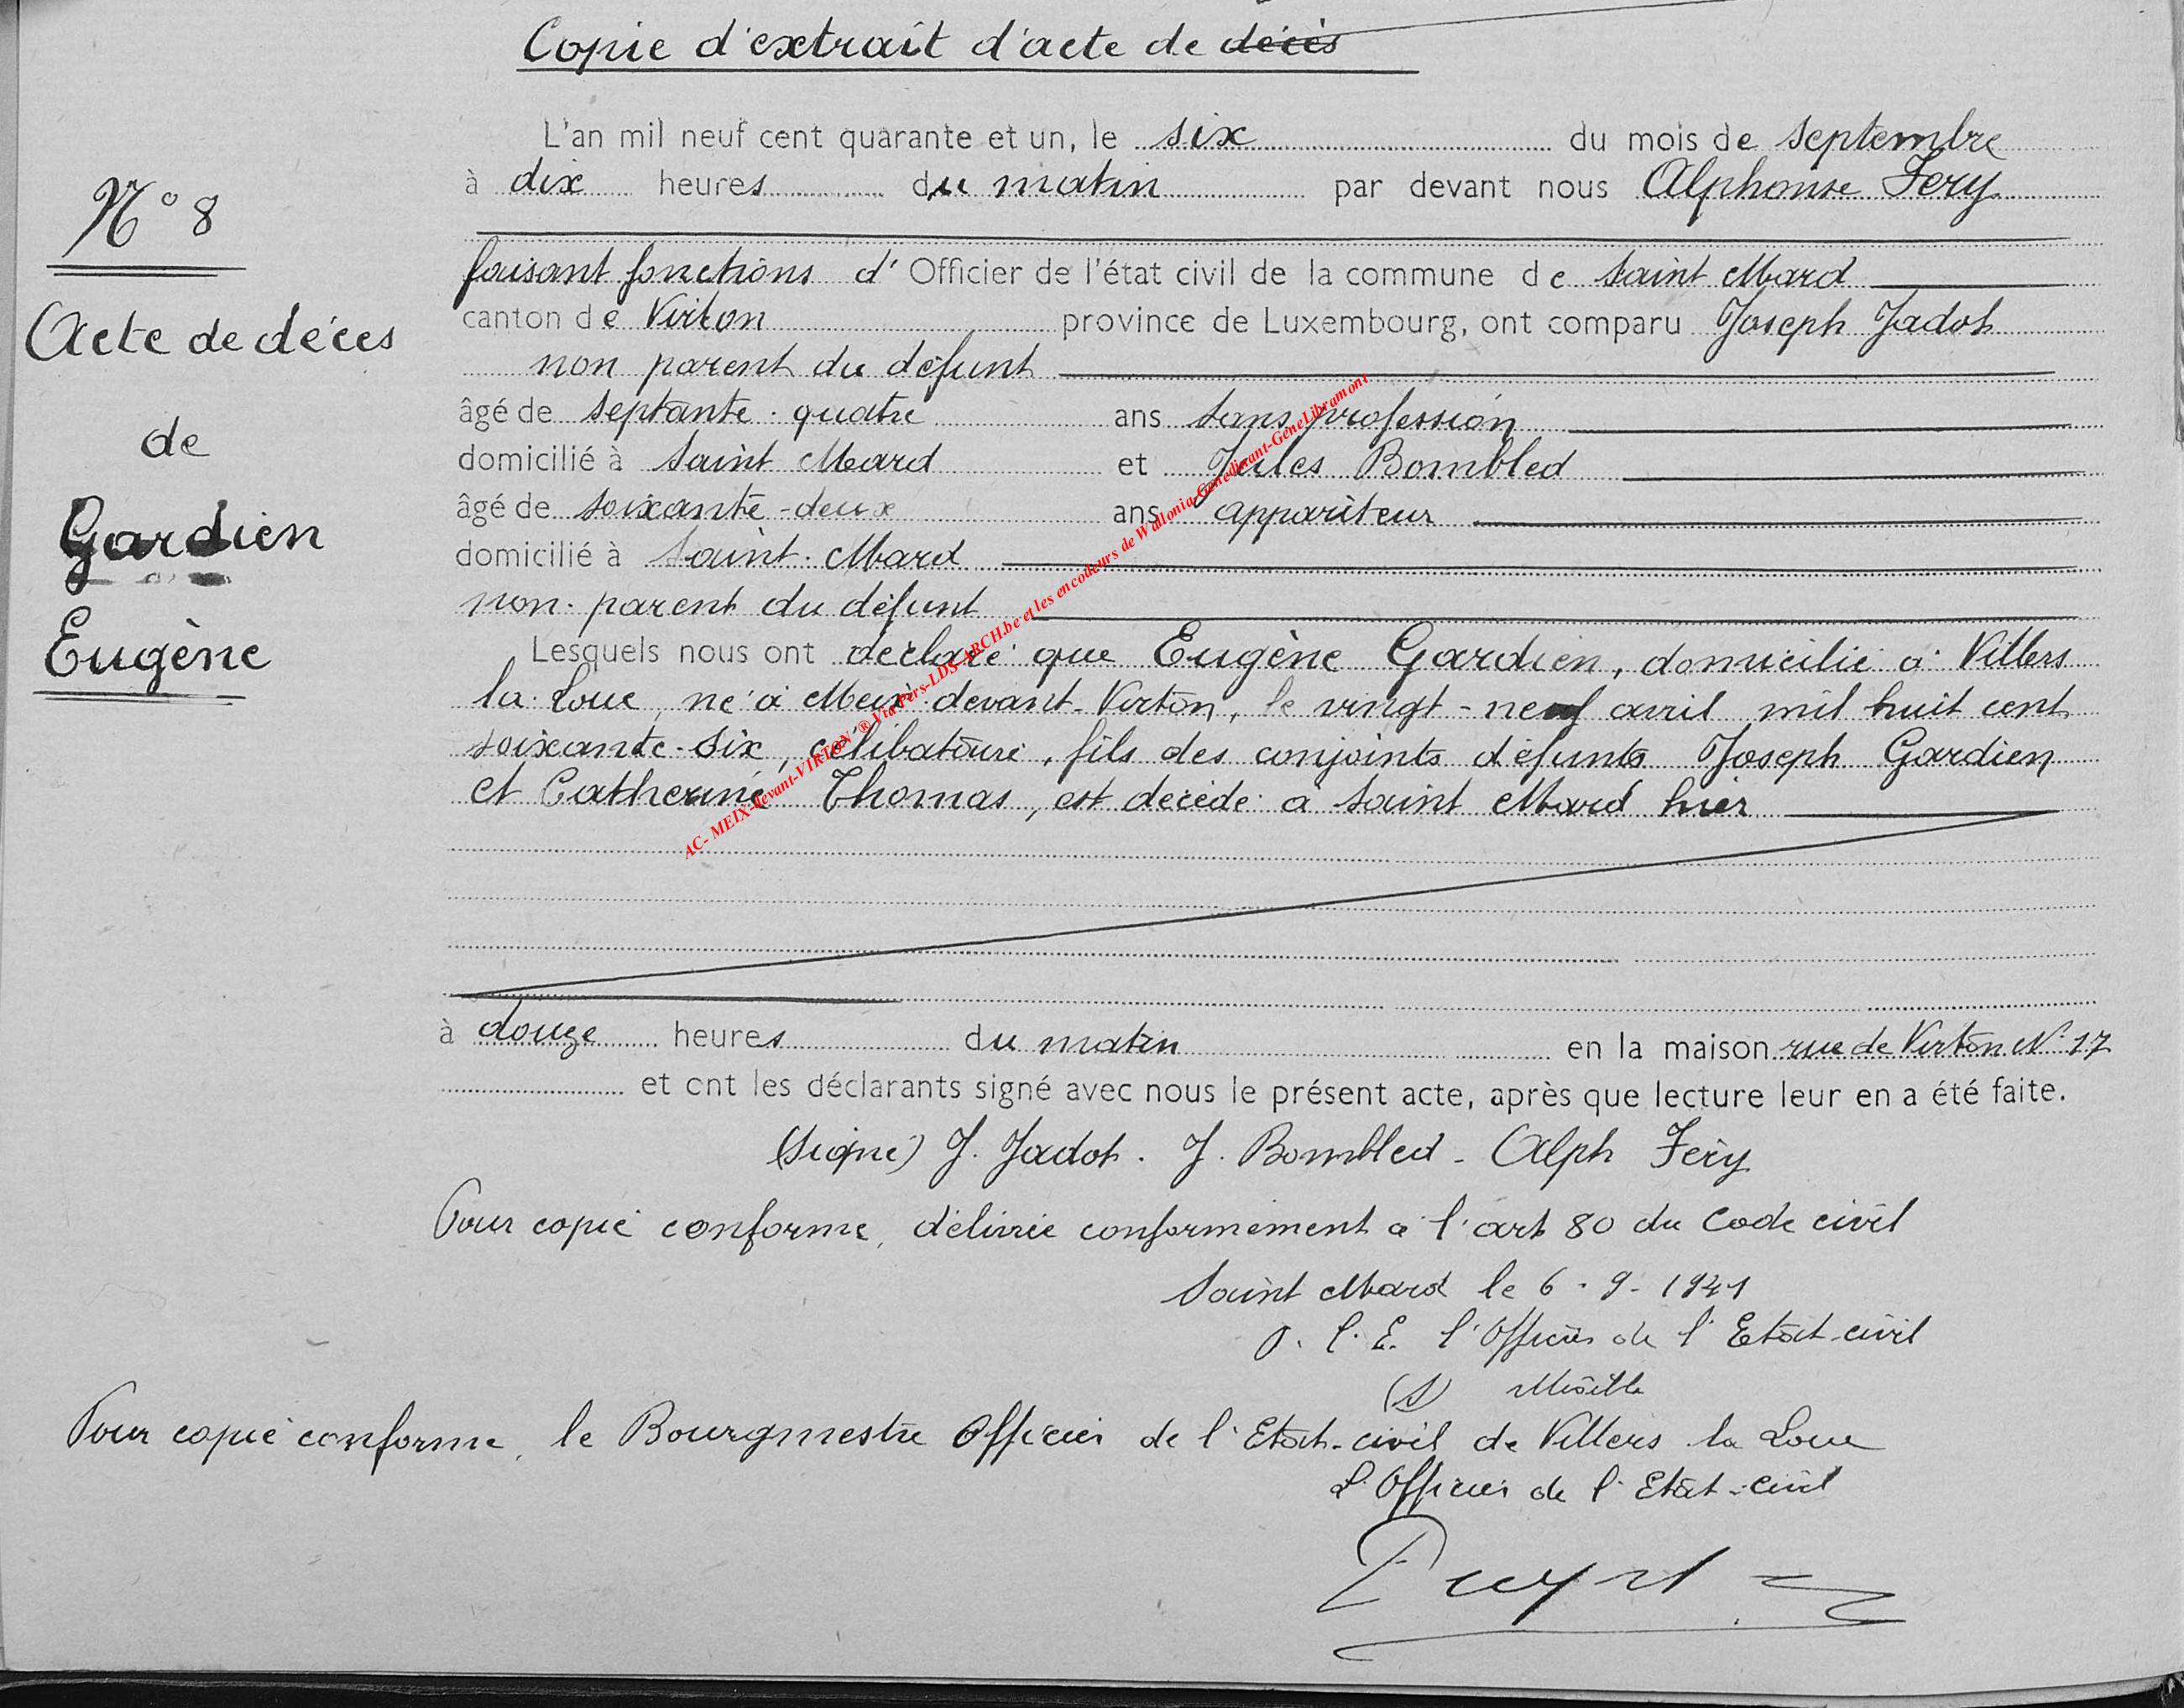 Copie d'extrait d'acte de décès
L'an mil neuf cent quarante et un, le six du mois de septembre
à dix heures du matin par devant nous Alphonse Fery
N° 8
faisant fonctions d' Officier de l'état civil de la commune de Saint Mard
canton de Virton province de Luxembourg, ont comparu Joseph Jadot
Acte de décès
non parent du défunt
âgé de septante-quatre ans sans profession
de
domicilié à Saint Mard et Jules Bombled
âgé de soixante-deux ans appariteur
Gardien
domicilié à Saint-Mard
non-parent du défunt
Eugène
Lesquels nous ont déclaré que Eugène Gardien, domicilié à Villers
la-Loue, né à Meix-devant-Virton, le vingt-neuf avril mil huit cent
soixante-six, célibataire, fils des conjoints défunts Joseph Gardien
et Catherine Thomas, est décédé à Saint Mard hier
AC- MEIX-devant-VIRTON ® Via Pers-LDS-ARCH.be et les encodeurs de Wallonia-Genedinant-GeneLibramont
à douze heures du matin en la maison rue de Virton N° 17
et ont les déclarants signé avec nous le présent acte, après que lecture leur en a été faite.
(Signé) J. Jadot. J. Bombled - Alph Féry
Pour copie conforme, délivrée conformément à l'art 80 du Code civil
Saint Mard le 6-9-1941
l'Officier de l'Etat-civil
(S)
Pour copie conforme, le Bourgmestre Officier de l'Etat-civil de Villers la Loue
L'Officier de l'Etat-civil